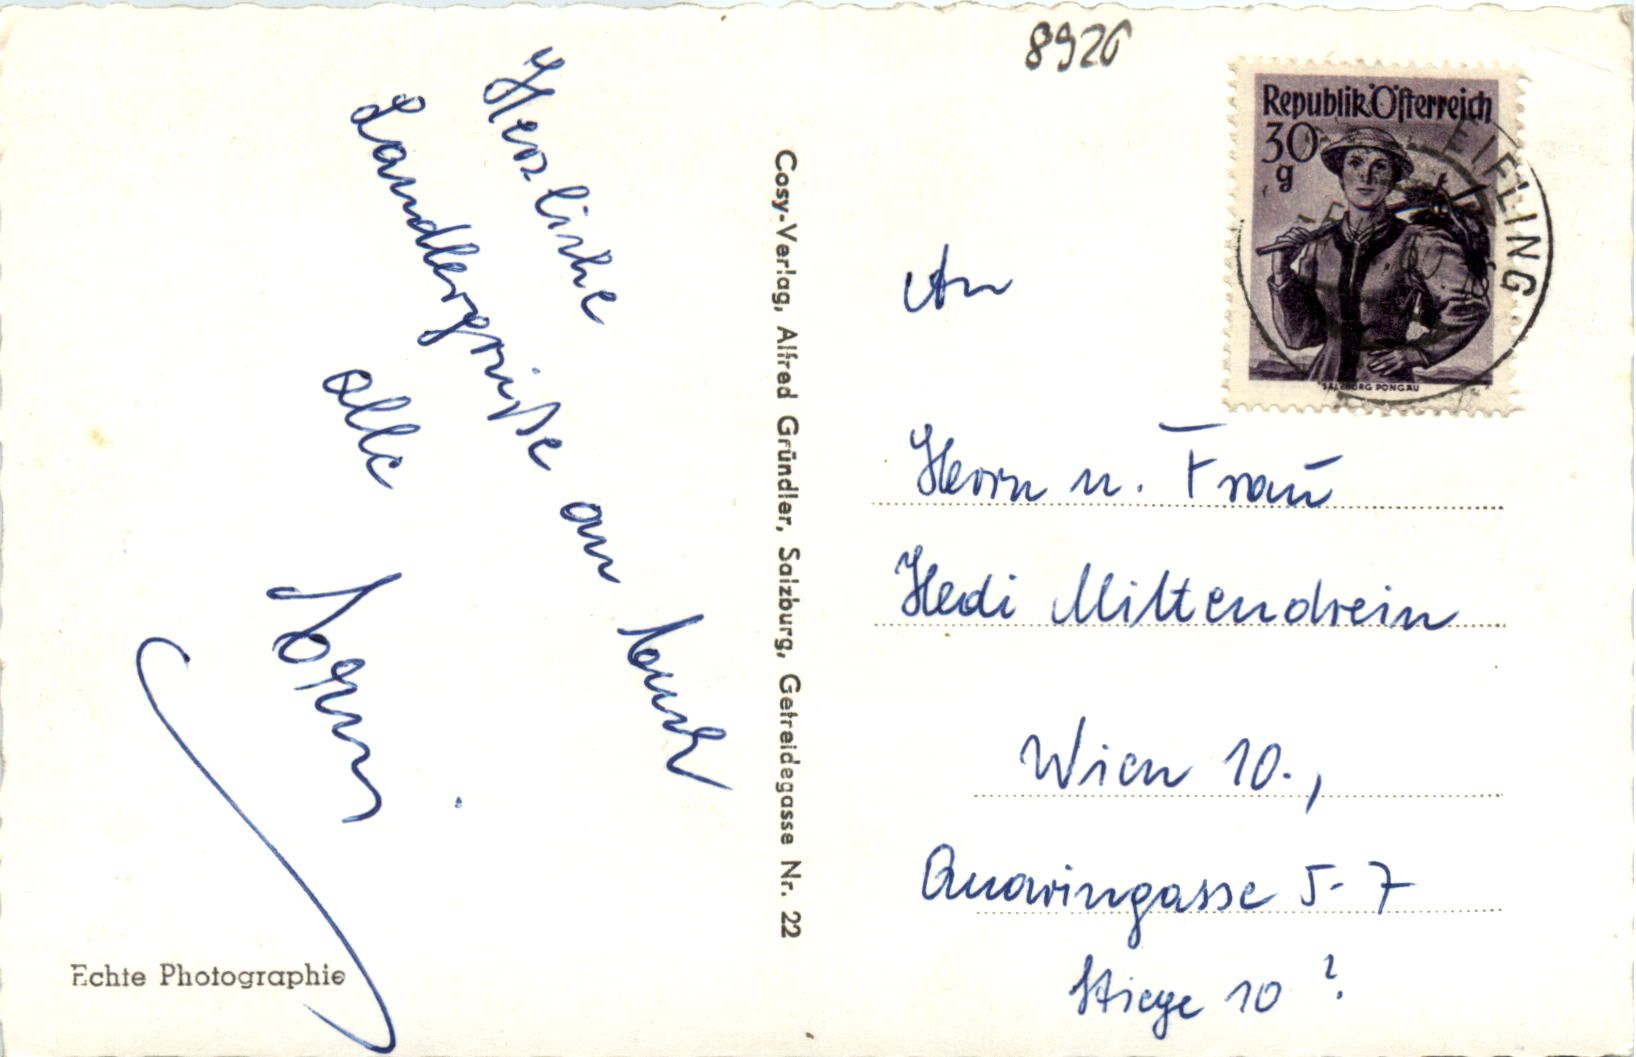 8926
Republik Österreich
30
g
EIFLING
SALZBURG PONGAU
Herzliche
Landlergrüße an Euch
alle
Cosy-Verlag, Alfred Gründler, Salzburg, Getreidegasse Nr. 22
Echte Photographie
An
Herrn u. Frau
Hedi Mittendrein
Wien 10.,
Quaringasse 5-7
Stiege 10 ?